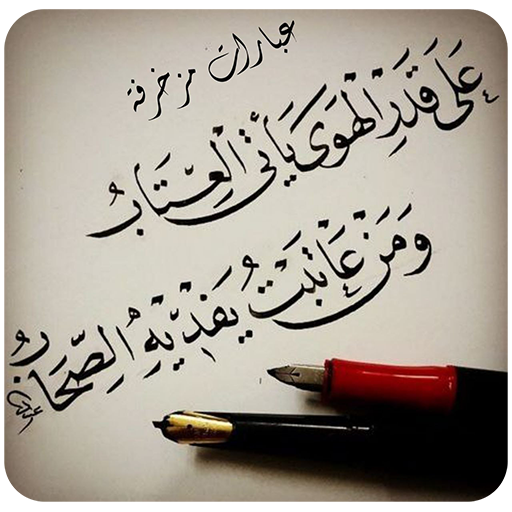 عبارات مزخرفة
عَلَى قَدَرِ الْهَوَى يَأْتِي الْعِتَابُ
وَمَنْ عَاتَبْتُ يَفْدِيْهِ الصِّحَابُ